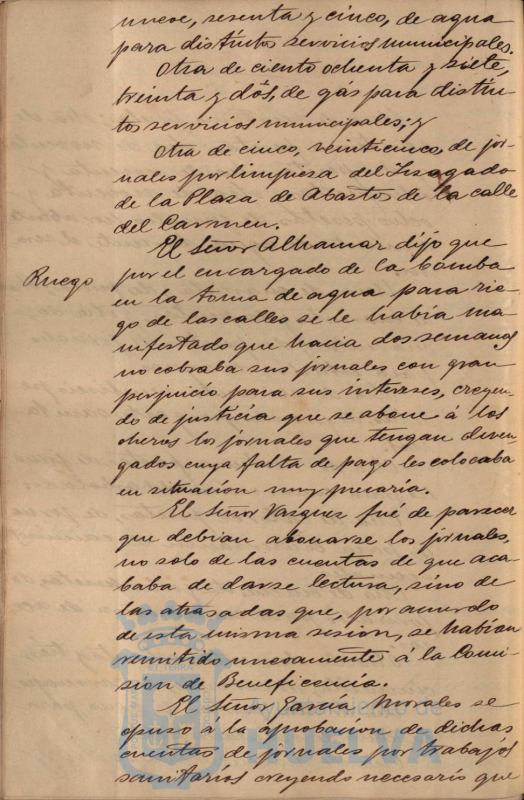 nueve, sesenta y cinco, de agua
para distintos servicios municipales.
Otra de ciento ochenta y siete,
treinta y dós, de gas para distin-
tos servicios municipales; y
Otra de cinco, veinticinco, de jor-
nales por limpieza del Juzgado
de la Plaza de Abastos de la calle
del Carmen.
El Señor Alhamar dijo que
Ruego
por el encargado de la bomba
en la toma de agua para rie-
go de las calles se le había ma-
nifestado que hacia dos semanas
no cobraba sus jornales con gran
perjuicio para sus intereses, creyen-
do de justicia que se abone á los
obreros los jornales que tengan deven-
gados cuya falta de pago les colocaba
en situacion muy precaria.
El Señor Vazquez fué de parecer
que debian abonarse los jornales,
no solo de las cuentas de que aca-
baba de darse lectura, sino de
las atrasadas que, por acuerdo
de esta misma sesion, se habian
remitido nuevamente á la Comi-
sion de Beneficencia.
El Señor García Morales se
opuso á la aprobacion de dichas
cuentas de jornales por trabajos
sanitarios creyendo necesario que
Ayuntamiento de
HUELVA